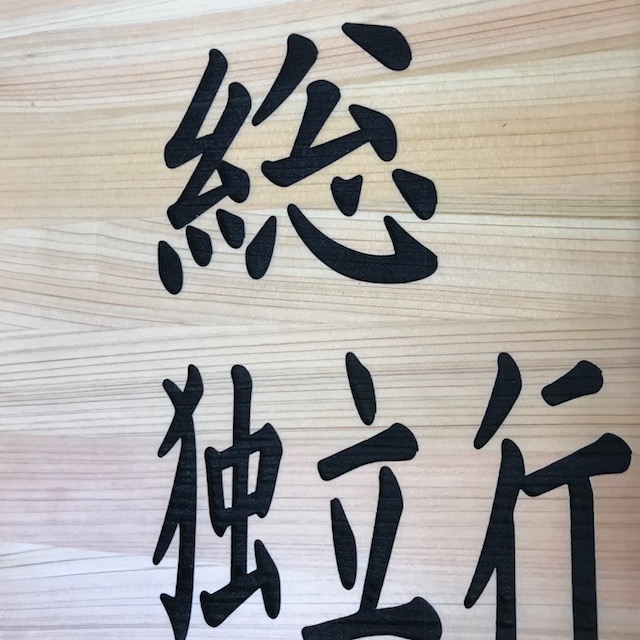 総
独立行